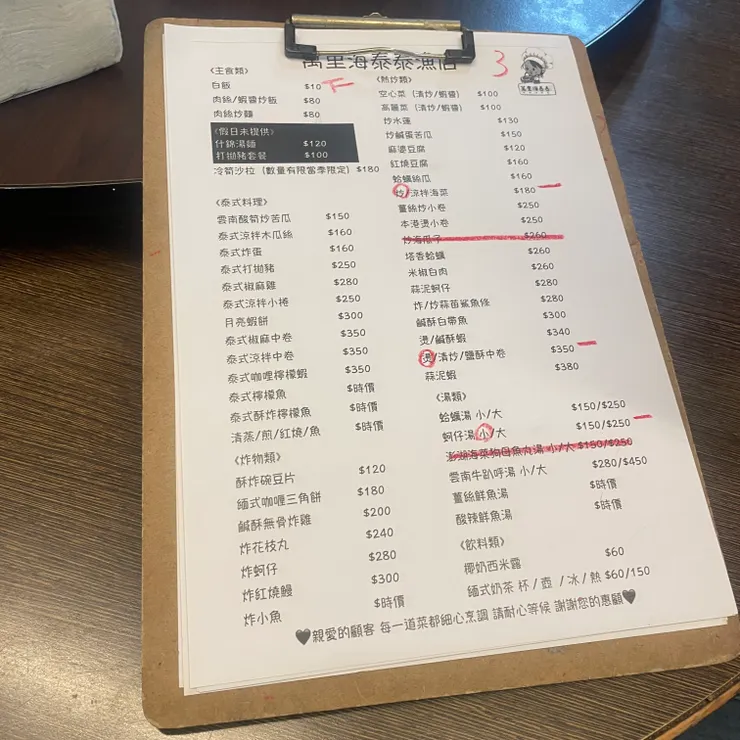 萬里海泰泰漁店
3
萬里海泰泰
《主食類》
白飯 $10 下
肉絲/蝦醬炒飯 $80
肉絲炒麵 $80
《假日未提供》
什錦湯麵 $120
打拋豬套餐 $100
冷筍沙拉 (數量有限當季限定) $180
《泰式料理》
雲南酸筍炒苦瓜 $150
泰式涼拌木瓜絲 $160
泰式炸蛋 $160
泰式打拋豬 $250
泰式椒麻雞 $280
泰式涼拌小捲 $250
月亮蝦餅 $300
泰式椒麻中卷 $350
泰式涼拌中卷 $350
泰式咖哩檸檬蝦 $350
泰式檸檬魚 $時價
泰式酥炸檸檬魚 $時價
清蒸/煎/紅燒/魚 $時價
《炸物類》
酥炸碗豆片 $120
緬式咖喱三角餅 $180
鹹酥無骨炸雞 $200
炸花枝丸 $240
炸蚵仔 $280
炸紅燒鰻 $300
炸小魚 $時價
《熱炒類》
空心菜 (清炒/蝦醬) $100
高麗菜 (清炒/蝦醬) $100
炒水蓮 $130
炒鹹蛋苦瓜 $150
麻婆豆腐 $120
紅燒豆腐 $160
蛤蠣絲瓜 $160
炒/涼拌海菜 $180
薑絲炒小卷 $250
本港燙小卷 $250
炒海瓜子 $260
塔香蛤蠣 $260
米椒白肉 $260
蒜泥蚵仔 $280
炸/炒蒜苗鯊魚條 $280
鹹酥白帶魚 $300
燙/鹹酥蝦 $340
燙/清炒/鹽酥中卷 $350
蒜泥蝦 $380
《湯類》
蛤蠣湯 小/大 $150/$250
蚵仔湯 小/大 $150/$250
澎湖海菜狗母魚丸湯 小/大 $150/$250
雲南牛趴呼湯 小/大 $280/$450
薑絲鮮魚湯 $時價
酸辣鮮魚湯 $時價
《飲料類》
椰奶西米露 $60
緬式奶茶 杯/壺/冰/熱 $60/150
♥親愛的顧客 每一道菜都細心烹調 請耐心等候 謝謝您的惠顧♥